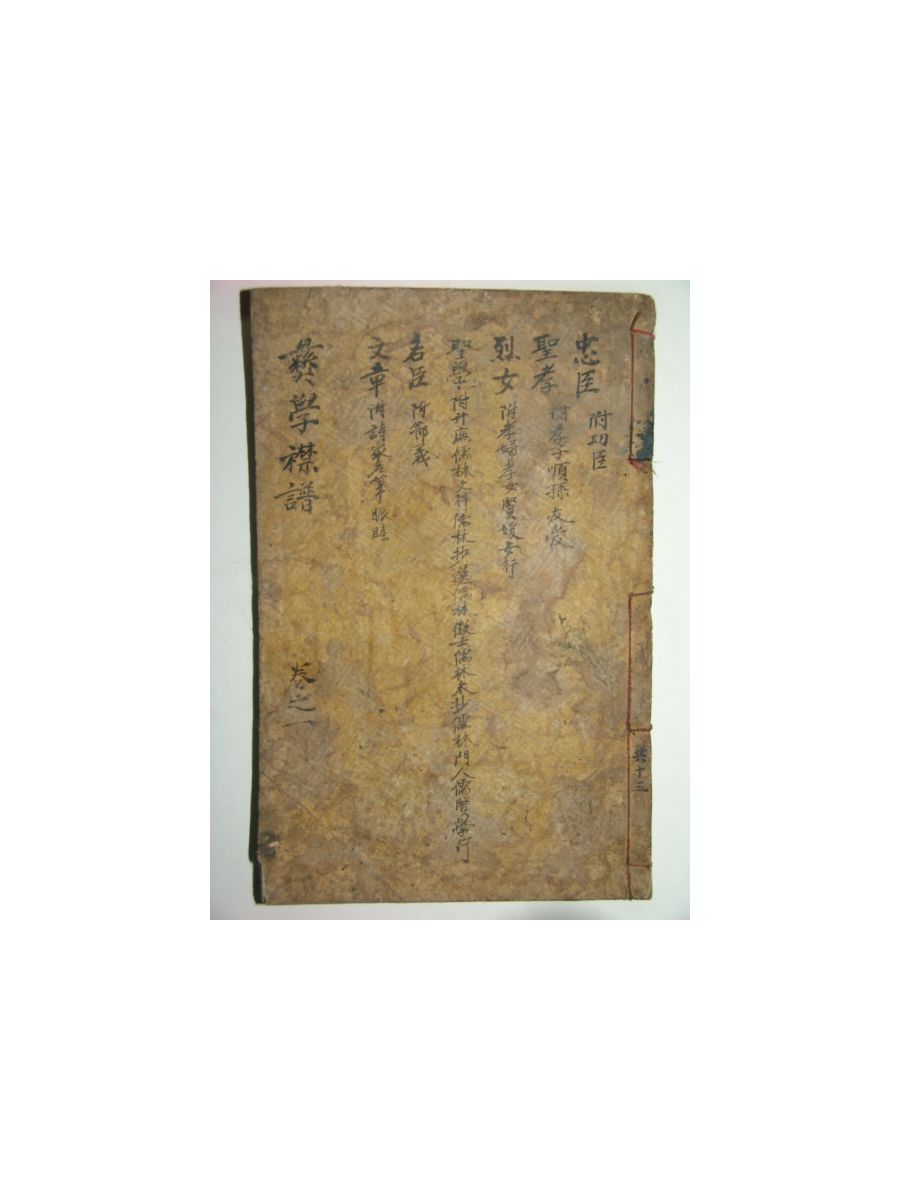 忠臣 附功臣
聖孝 附孝子順孫友愛
烈女 附孝婦孝女賢媛女行
聖學 附升廡儒林文科儒林抄選儒林徵士儒林未抄儒林門人儒賢學行
名臣 附節義
文章 附詩家名筆
彛學襟譜
卷之一
共十三